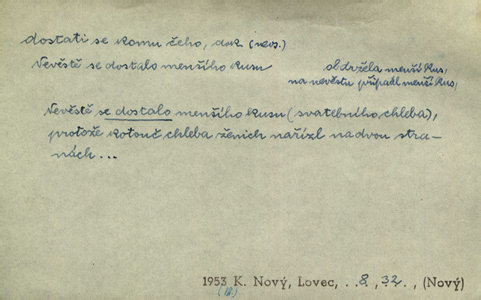 dostati se komu čeho, dok. (neos.)
Nevěstě se dostalo menšího kusu
obdržela menší kus,
na nevěstu připadl menší kus,
Nevěstě se dostalo menšího kusu (svatebního chleba),
protože kotouč chleba ženich nařízl na dvou stra-
nách...
1953 K. Nový, Lovec, . . 8 , 32 . , (Nový)